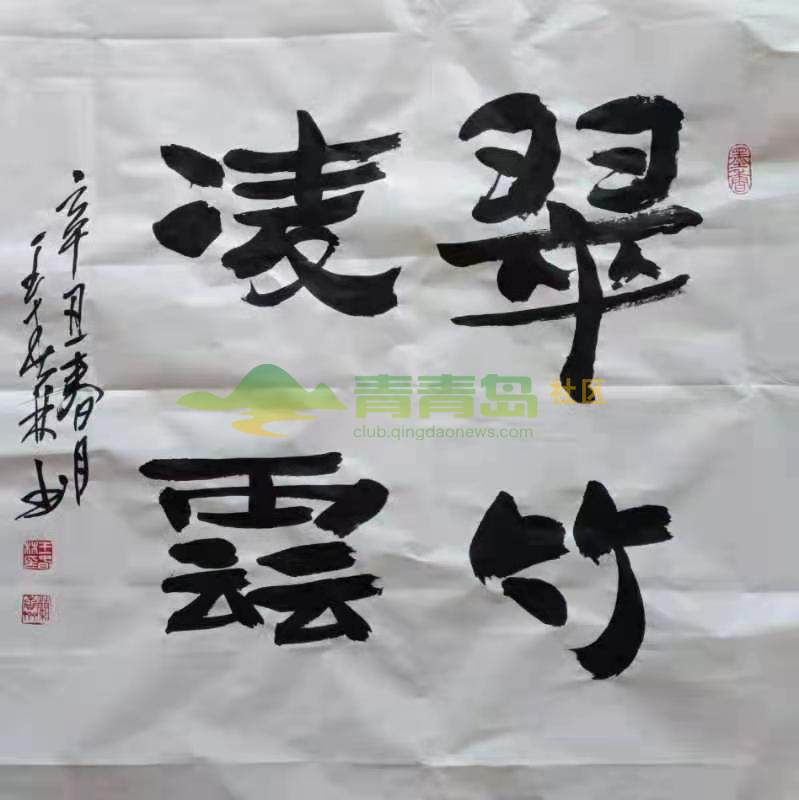 翠竹
凌雲
辛丑春月
王 林书
墨香
青青岛社区
club.qingdaonews.com